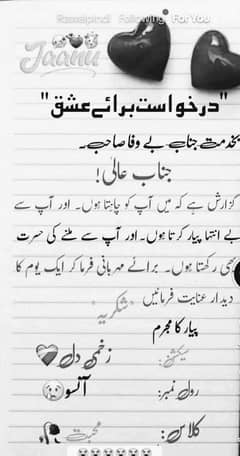 Rawalpindi Following For You
Jaanu
"درخواست برائے عشق"
بخدمت جناب بے وفا صاحب۔
جناب عالیٰ!
گزارش ہے کہ میں آپ کو چاہتا ہوں۔ اور آپ سے
بے انتہا پیار کرتا ہوں۔ اور آپ سے ملنے کی حسرت
بھی رکھتا ہوں۔ برائے مہربانی فرما کر ایک یوم کا
دیدار عنایت فرمائیں
شکریہ
پیار کا مجرم
سیکشن: زخمی دل
رول نمبر: آنسو
کلاس: محبت